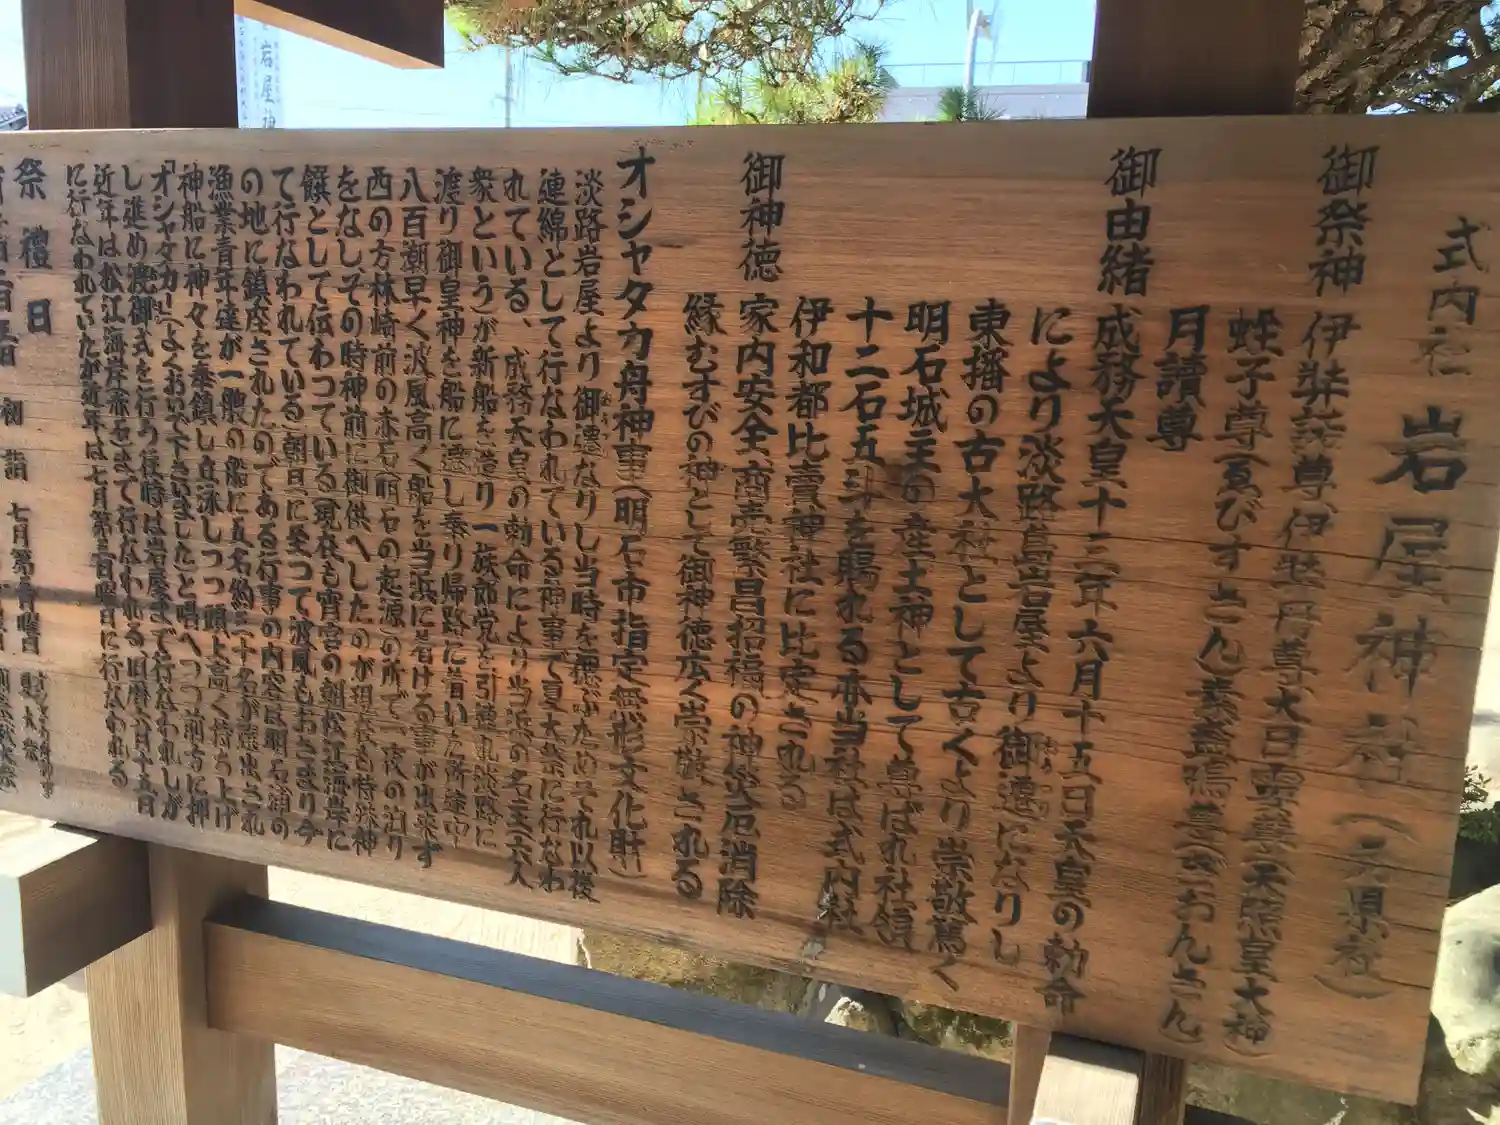 式内社 岩屋神社(元県社)
御祭神 伊弉諾尊、伊弉冊尊、大日孁尊(天照皇大神)
蛭子尊(ゑびすさん)素盞嗚尊(ぎおんさん)
月讀尊
御由緒 成務天皇十三年六月十五日天皇の勅命
により淡路島岩屋より御遷になりし
東播の古大社として古くより崇敬篤く
明石城主の産土神として尊ばれ社領
十二石五斗を賜れる亦当社は式内社
伊和都比賣神社に比定される
御神徳 家内安全商売繁昌招福の神災厄消除
縁むすびの神として御神徳広く崇敬される
オシャタカ舟神事(明石市指定無形文化財)
淡路岩屋より御遷なりし当時を偲ぶためそれ以後
連綿として行なわれている神事で夏大祭に行なわ
れている、成務天皇の勅命により当浜の名主(六人
衆という)が新船を造り一族郎党を引連れ淡路に
渡り御皇神を船に遷し奉り帰路に着いた所途中
八百潮早く波風高く船を当浜に着ける事が出来ず
西の方林崎前の赤石(明石の起源)の所で一夜の泊り
をなしその時神前に御供へしたのが現在も特殊神
饌として伝わつている現在も宵宮の朝松江海岸に
て行なわれている)朝日に受つて波風もおさまり今
の地に鎮座されたのである行事の内容は明石浦の
漁業青年達が一艘の船に五名約三十名が選出され
神船に神々を奉鎮し立泳しつつ頭上高く持ち上げ
「オシャタカー」(よくおいで下さいましたと唱へつつ前方に押
し進め渡御式を行う往時は岩屋まで行なわれしが
近年は松江海岸赤石まで行なわれる 旧暦六月十五日
に行なわれていたが近年は七月第三日曜日に行なわれる
祭禮日 初詣 七月第三日曜日 夏大祭
岩屋神